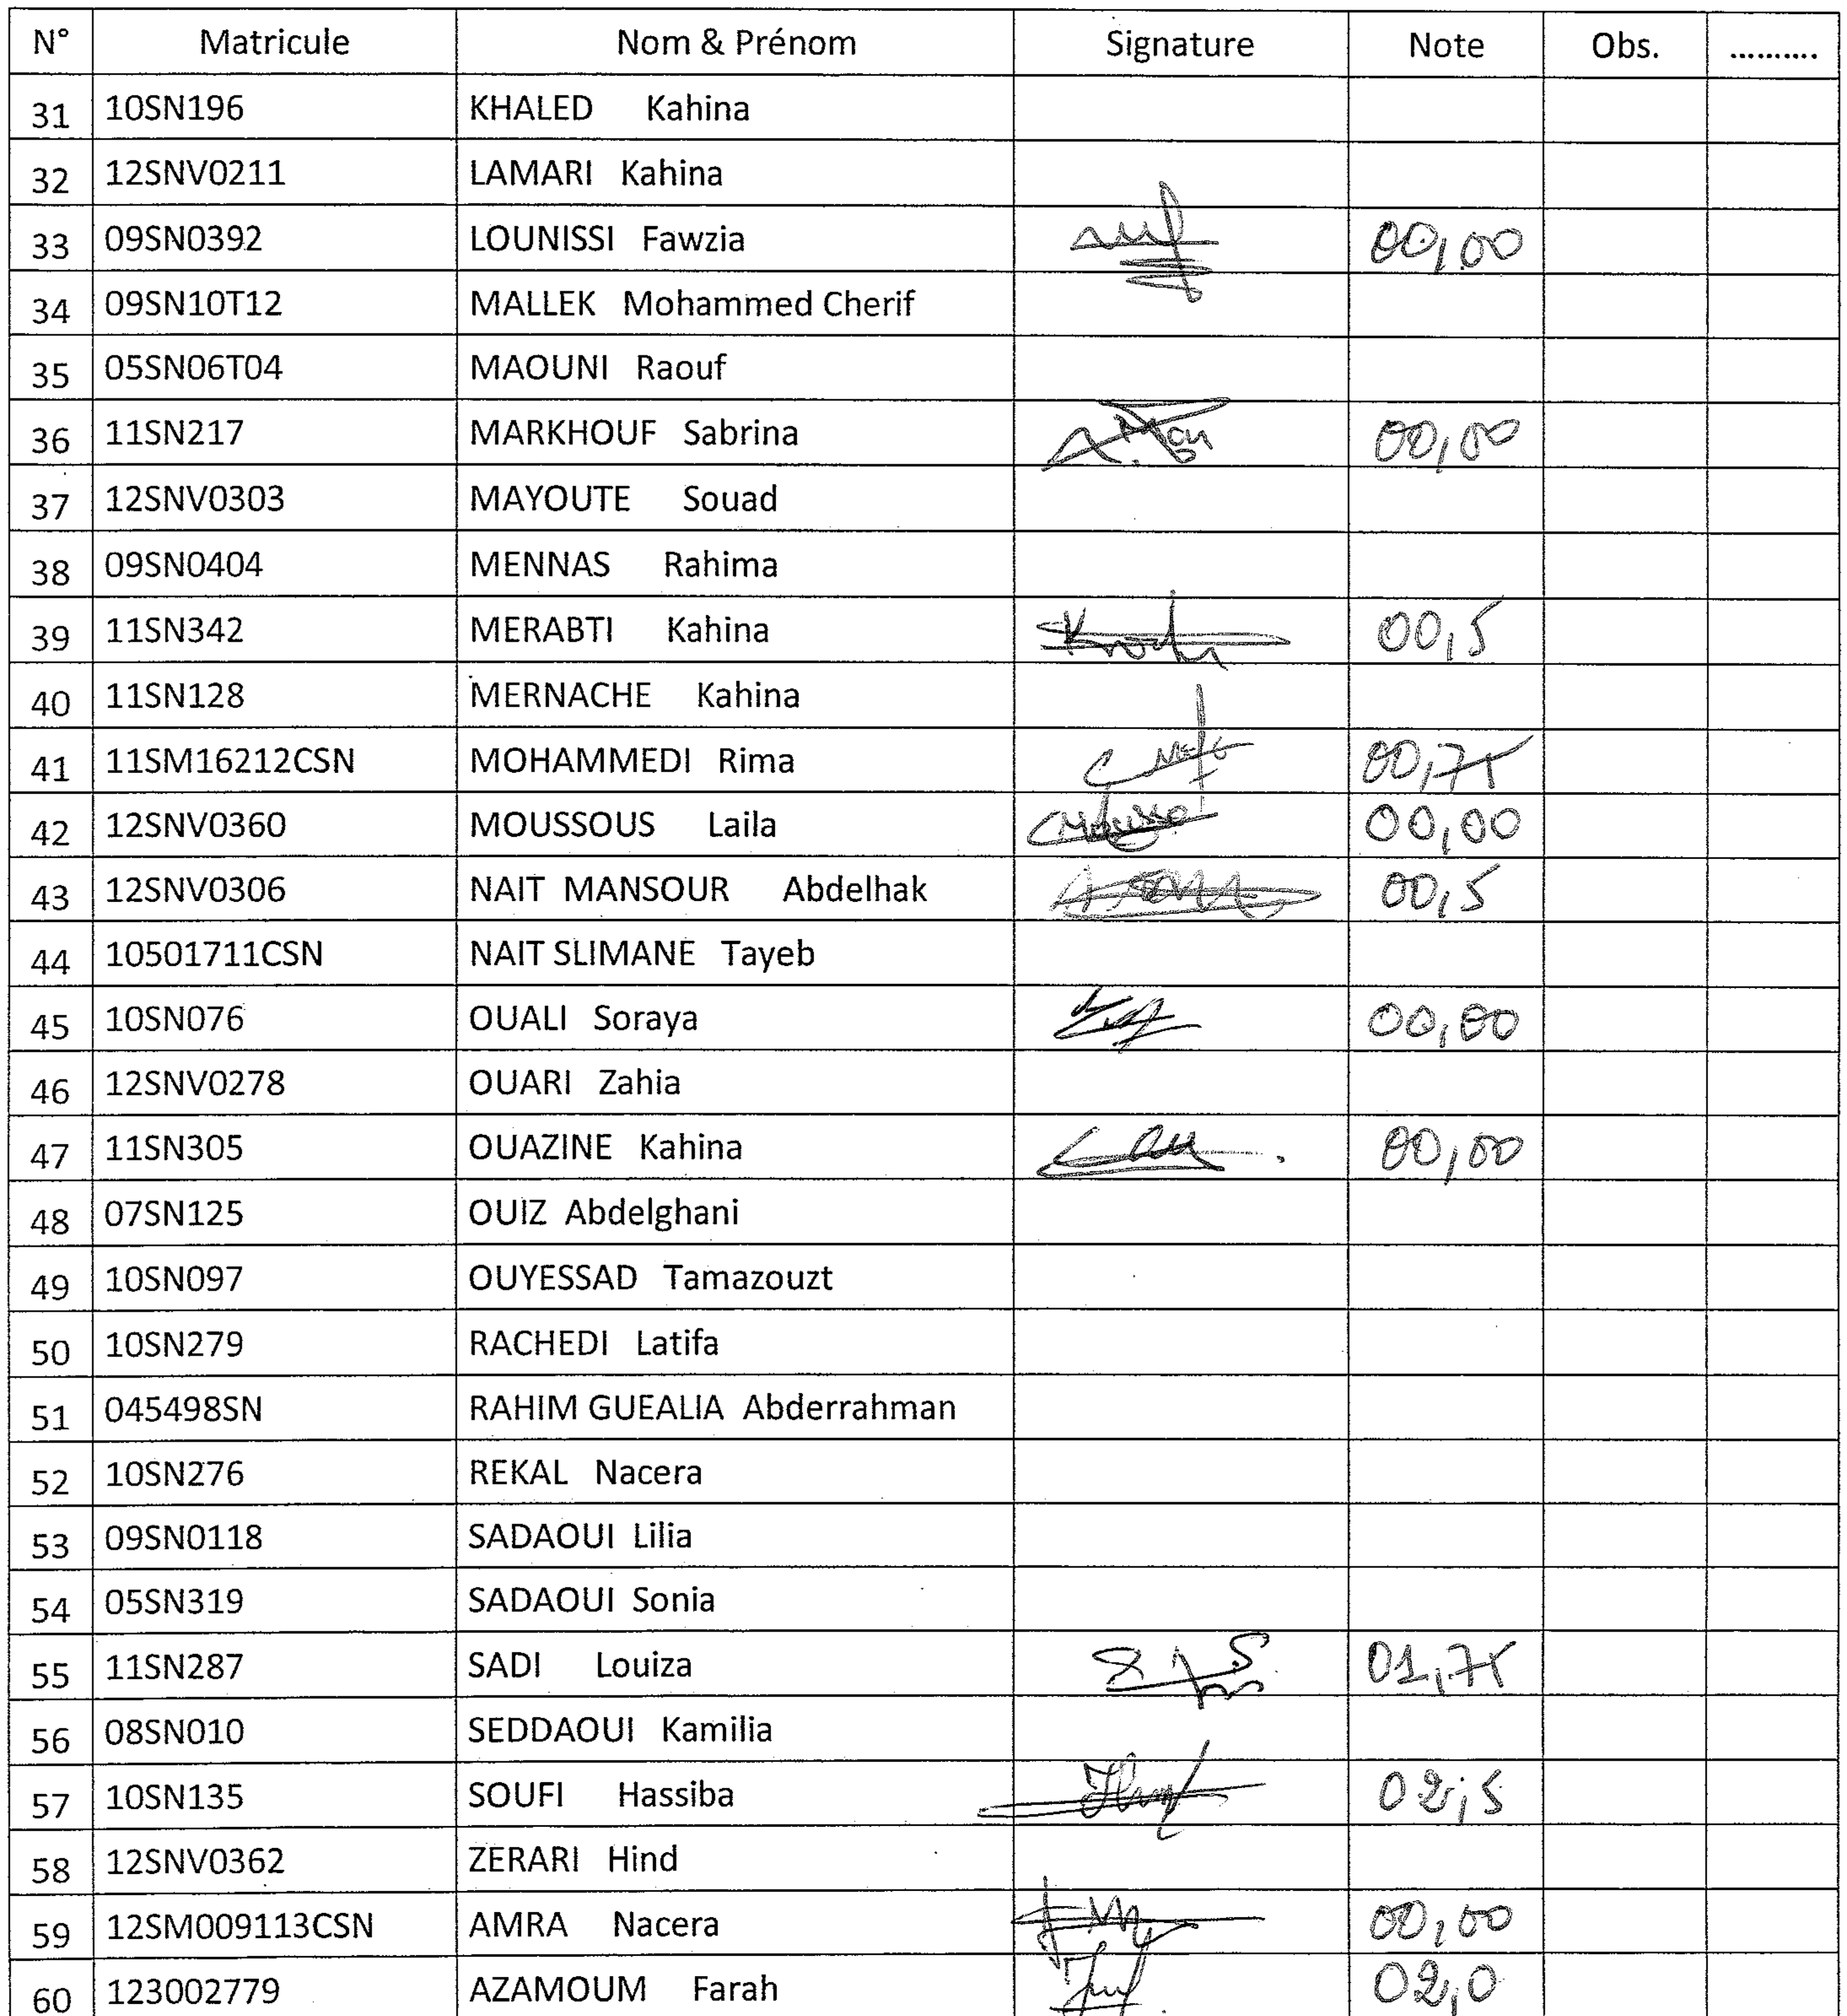 N° Matricule Nom & Prénom Signature Note Obs. ..........
31 10SN196 KHALED Kahina
32 12SNV0211 LAMARI Kahina
33 09SN0392 LOUNISSI Fawzia 00,00
34 09SN10T12 MALLEK Mohammed Cherif
35 05SN06T04 MAOUNI Raouf
36 11SN217 MARKHOUF Sabrina 00,00
37 12SNV0303 MAYOUTE Souad
38 09SN0404 MENNAS Rahima
39 11SN342 MERABTI Kahina 00,5
40 11SN128 MERNACHE Kahina
41 11SM16212CSN MOHAMMEDI Rima 00,75
42 12SNV0360 MOUSSOUS Laila 00,00
43 12SNV0306 NAIT MANSOUR Abdelhak 00,5
44 10501711CSN NAIT SLIMANE Tayeb
45 10SN076 OUALI Soraya 00,00
46 12SNV0278 OUARI Zahia
47 11SN305 OUAZINE Kahina 00,00
48 07SN125 OUIZ Abdelghani
49 10SN097 OUYESSAD Tamazouzt
50 10SN279 RACHEDI Latifa
51 045498SN RAHIM GUEALIA Abderrahman
52 10SN276 REKAL Nacera
53 09SN0118 SADAOUI Lilia
54 05SN319 SADAOUI Sonia
55 11SN287 SADI Louiza 01,75
56 08SN010 SEDDAOUI Kamilia
57 10SN135 SOUFI Hassiba 02,5
58 12SNV0362 ZERARI Hind
59 12SM009113CSN AMRA Nacera 00,00
60 123002779 AZAMOUM Farah 02,0